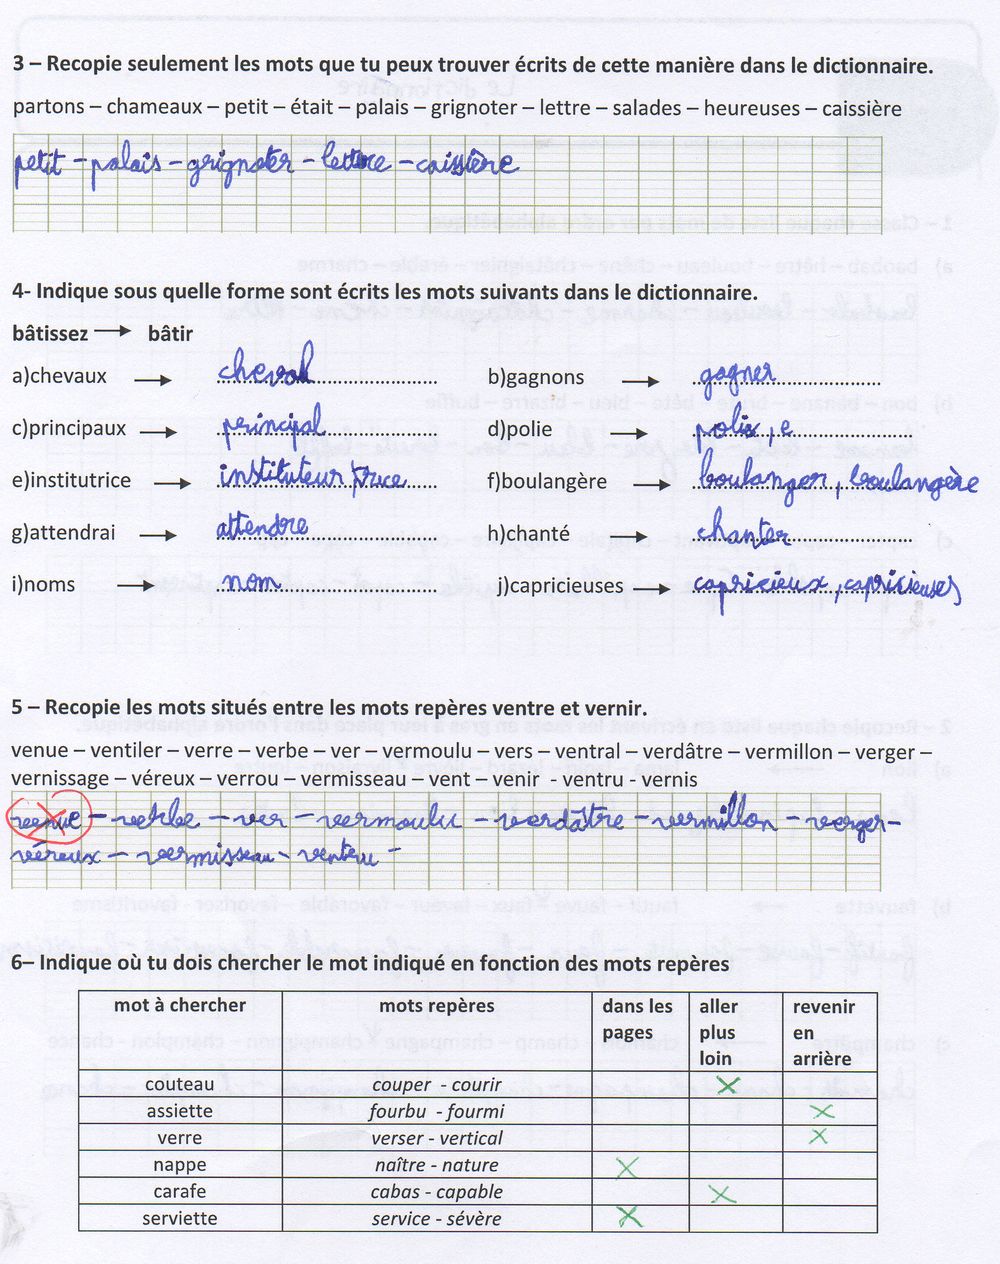 3 – Recopie seulement les mots que tu peux trouver écrits de cette manière dans le dictionnaire.
partons – chameaux – petit – était – palais – grignoter – lettre – salades – heureuses – caissière
petit – palais – grignoter – lettre – caissière
4- Indique sous quelle forme sont écrits les mots suivants dans le dictionnaire.
bâtissez → bâtir
a)chevaux → cheval b)gagnons → gagner
c)principaux → principal d)polie → polix, e
e)institutrice → instituteur, trice f)boulangère → boulanger, boulangère
g)attendrai → attendre h)chanté → chanter
i)noms → nom j)capricieuses → capricieux, capricieuses
5 – Recopie les mots situés entre les mots repères ventre et vernir.
venue – ventiler – verre – verbe – ver – vermoulu – vers – ventral – verdâtre – vermillon – verger –
vernissage – véreux – verrou – vermisseau – vent – venir - ventru - vernis
venue – verbe – ver – vermoulu – verdâtre – vermillon – verger –
véreux – vermisseau –
6– Indique où tu dois chercher le mot indiqué en fonction des mots repères
mot à chercher mots repères dans les pages aller plus loin revenir en arrière
couteau couper - courir X
assiette fourbu - fourmi X
verre verser - vertical X
nappe naître - nature X
carafe cabas - capable X
serviette service - sévère X